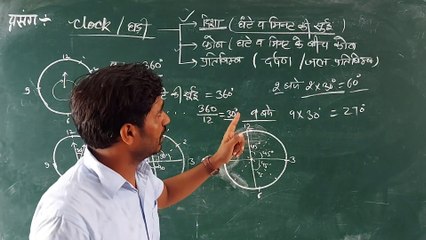 प्रसंग:- clock / घड़ी
→ दिशा (घंटे व मिनट की सुई)
→ कोण (घंटे व मिनट के बीच कोण
→ प्रतिबिम्ब (दर्पण / जल प्रतिबिम्ब)
2 बजे 2×30°=60°
की सुई = 360°
360/12 = 30° 9 बजे 9×30° = 270°
12
12
3
3
6